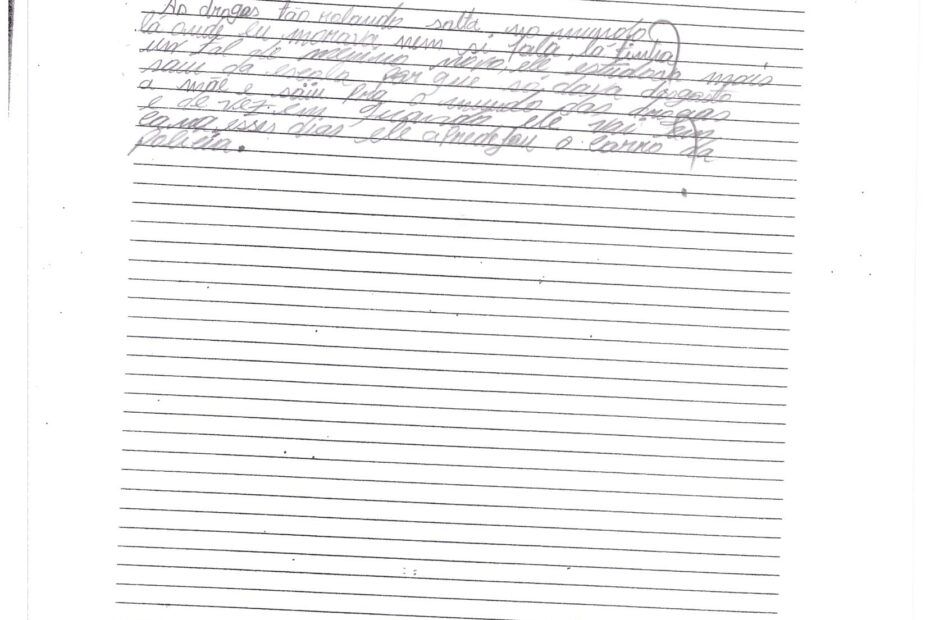 As drogas tão rolando solta no mundo
lá onde eu morava nem si fala, lá tinha
um tal de menino novo, ele estudava mais
saiu da escola por que só dava desgosto
a mãe e saiu pra o mundo das drogas
e de vez em quando ele vai em
cana, esses dias ele apredejou o carro da
polícia.